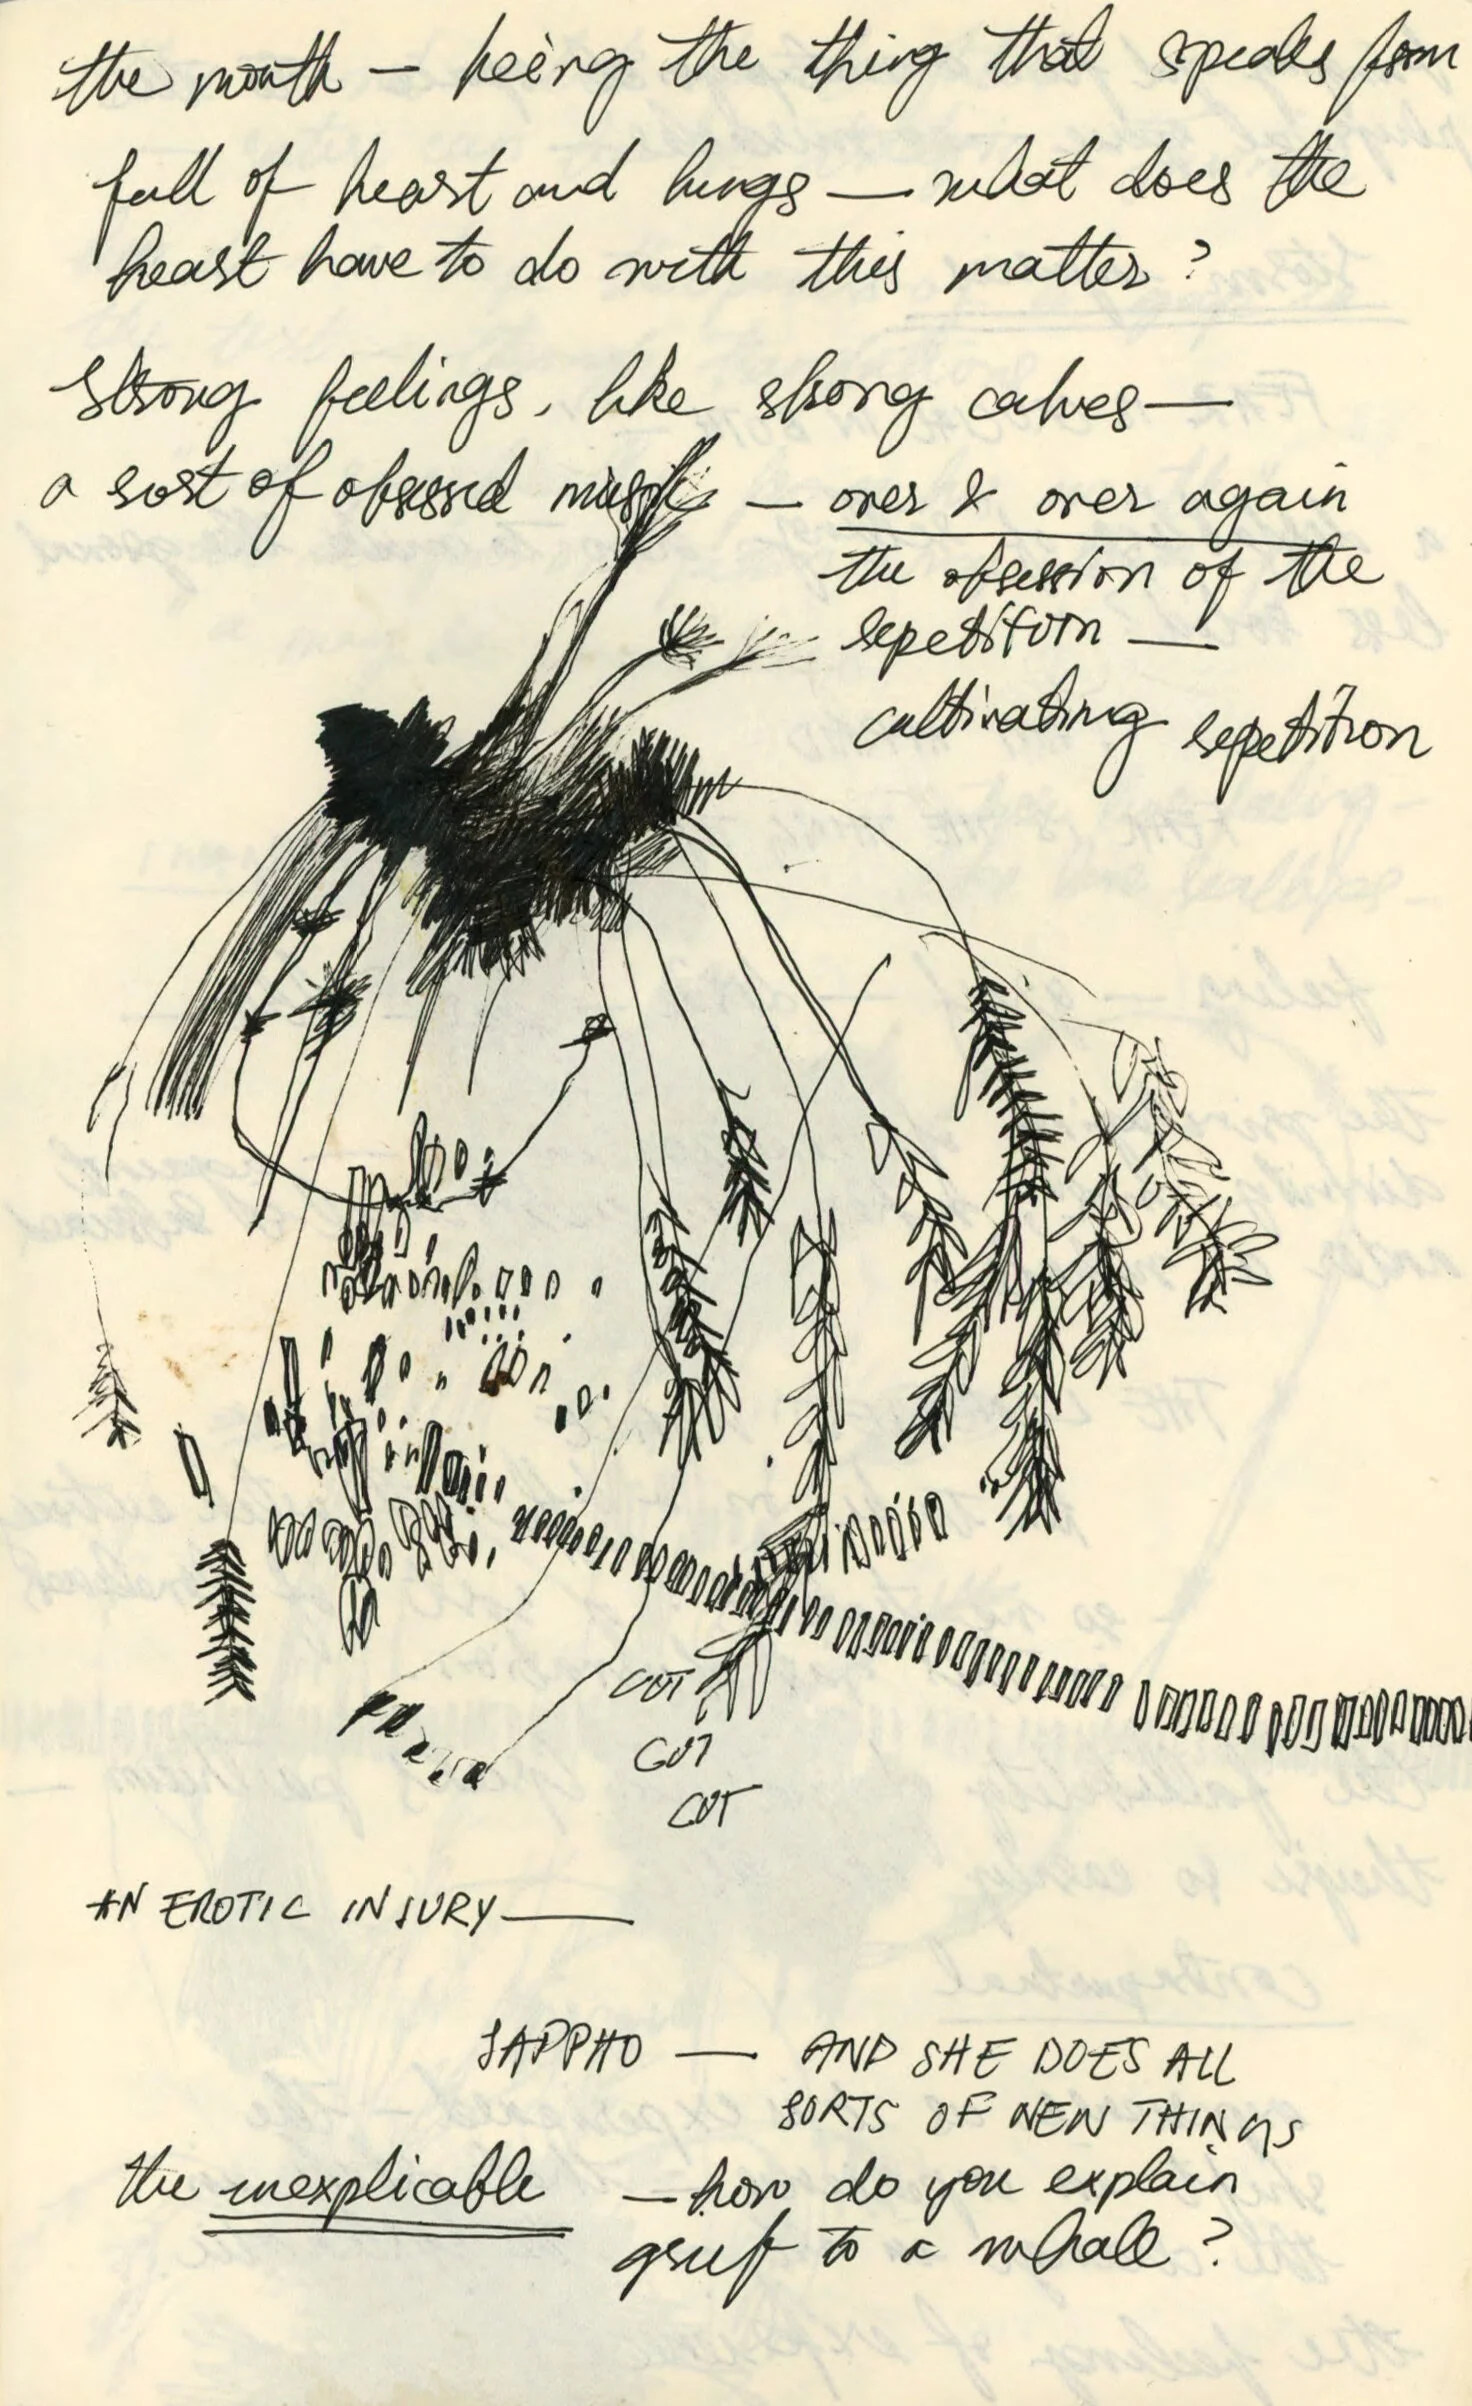 the mouth — being the thing that speaks from
full of heart and lungs — what does the
heart have to do with this matter?
strong feelings, like strong calves —
a sort of obsessed music — over & over again
the obsession of the
repetition —
cultivating repetition
CUT
CUT
CUT
AN EROTIC INJURY —
SAPPHO — AND SHE DOES ALL
SORTS OF NEW THINGS
the inexplicable — how do you explain
grief to a whale?